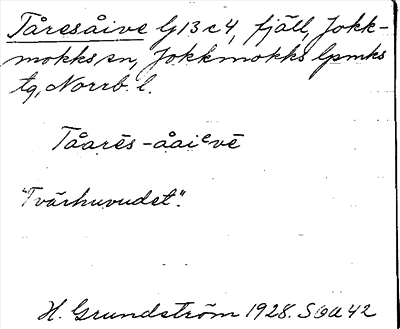 Tåresåive G13c4, fjäll, Jokk-
mokks sn, Jokkmokks lpmks
tg, Norrb. l.
Tåarēs-åaiᵉvē
"Tvärhuvudet".
H. Grundström 1928. SOU 42